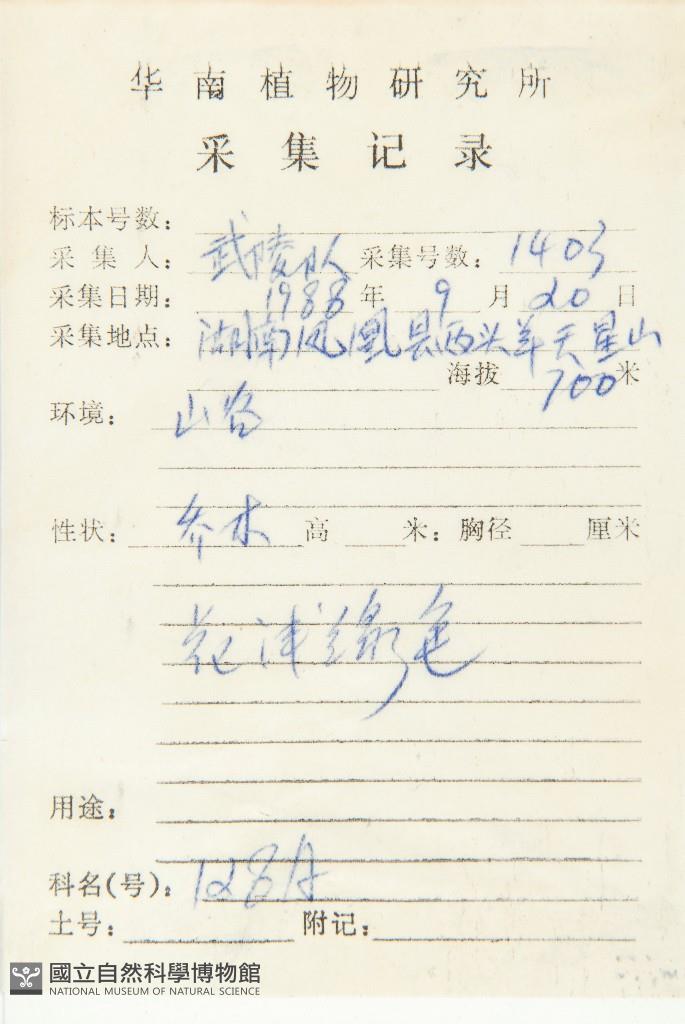 华南植物研究所
采集记录
标本号数：
采集人：武陵队 采集号数：1403
采集日期：1988年9月20日
采集地点：湖南凤凰县两头羊天星山
海拔700米
环境：山谷
性状：乔木 高 米：胸径 厘米
花浅绿色
用途：
科名(号)：128A
土号： 附记：
國立自然科學博物館
NATIONAL MUSEUM OF NATURAL SCIENCE